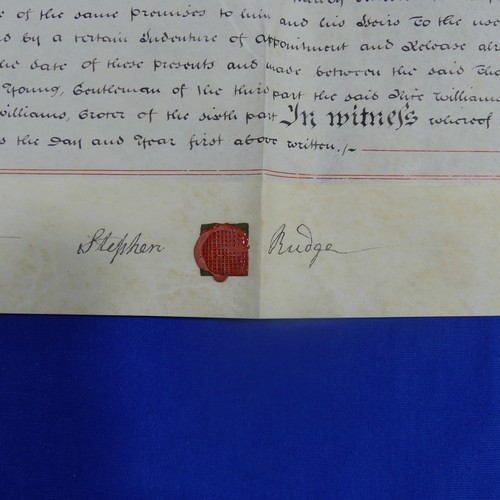 of the same premises to him and his Heirs To the use
by a certain Indenture of Appointment and Release
the date of these presents and made between the said
Young, Gentleman of the third part the said
Williams, Grocer of the sixth part In witness whereof
the Day and Year first above written./~
Stephen Rudge